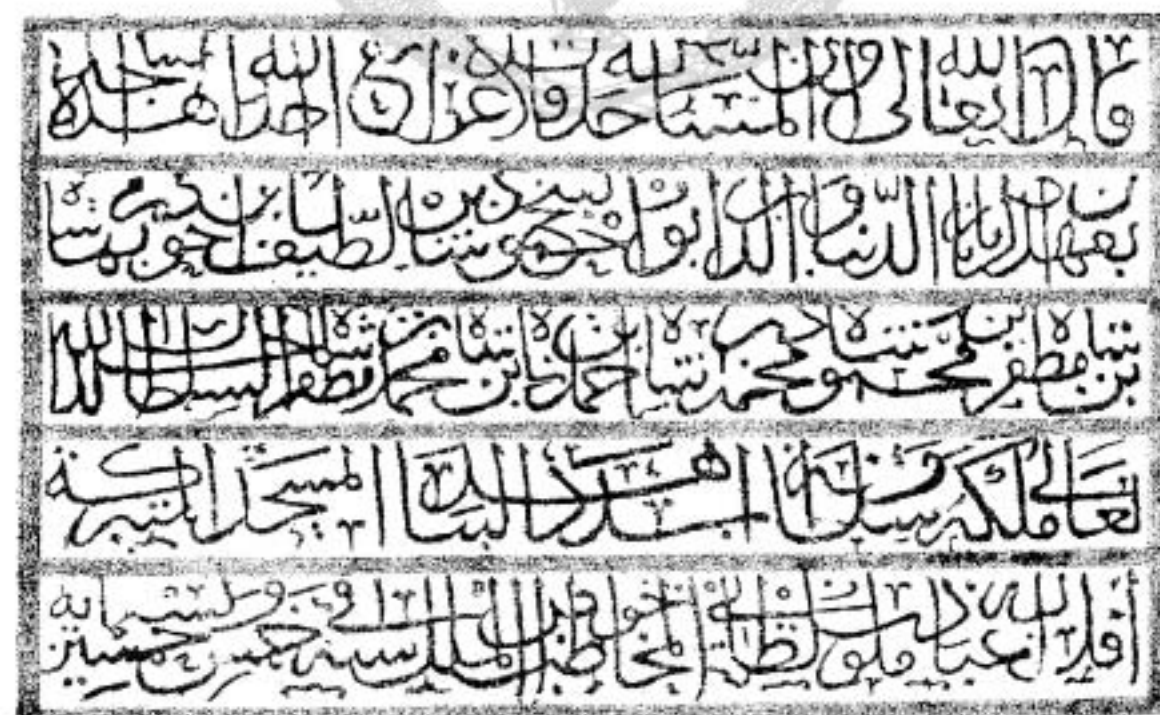 قال الله تعالى وان المساجد لله فلا تدعوا مع الله احدا
الدنيا و الدين ابو الفتح محمود شاه بن لطيف خان اخو بهادر شاه
بن مظفر شاه بن محمود شاه بن محمد شاه بن احمد شاه بن محمد شاه بن مظفر شاه السلطان خلد الله
تعالى ملكه و سلطانه هذه البنا المسجد المتبركة
اقل عباد المخاطب الملك في سنه خمس و خمسين و تسعمايه